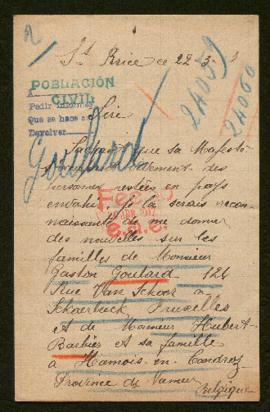 St Brice ce 22-5
24059
24060
POBLACIÓN
CIVIL
Pedir informes
Que se hace
Devolver
Sire
Goulard
que sa Majesté
des
personnes restées en pays
envahi je la serais recon-
naissante de me donner
des nouvelles sur les
familles de Monsieur
Gaston Goulard 126
Rue Van Schoor à
Schaerbeek Bruxelles
et de Monsieur Hubert
Barbier et sa famille
à Hamois-en-Condroz
Province de Namur
Belgique